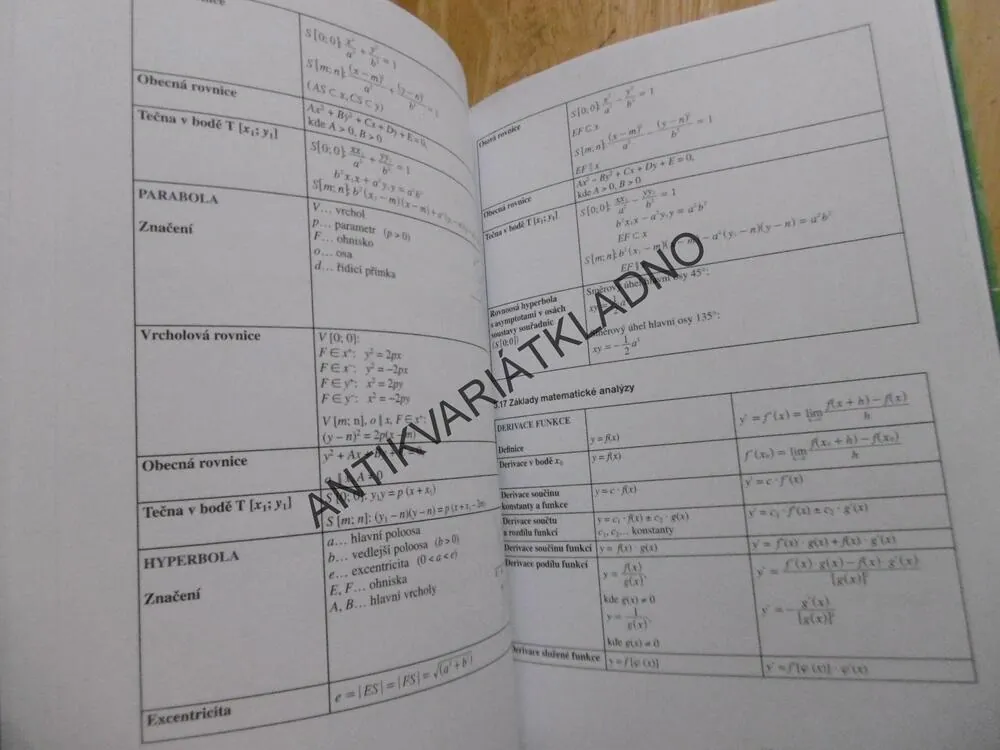 S[0; 0]: x²/a² + y²/b² = 1
S[m; n]: (x − m)²/a² + (y − n)²/b² = 1
(AS ⊂ x, CS ⊂ y)
Obecná rovnice
Ax² + By² + Cx + Dy + E = 0,
kde A > 0, B > 0
Tečna v bodě T [x₁; y₁]
S[0; 0]: xx₁/a² + yy₁/b² = 1
b²x₁x + a²y₁y = a²b²
S[m; n]: b²(x₁ − m)(x − m) + a²(y₁
PARABOLA
Značení
V… vrchol
p… parametr (p > 0)
F… ohnisko
o… osa
d… řídicí přímka
Vrcholová rovnice
V [0; 0]:
F ∈ x⁺: y² = 2px
F ∈ x⁻: y² = −2px
F ∈ y⁺: x² = 2py
F ∈ y⁻: x² = −2py
V [m; n], o ∥ x, F ∈ x⁺:
(y − n)² = 2p(x − m)
Obecná rovnice
y² + Ax + By
A ≠ 0
Tečna v bodě T [x₁; y₁]
S [0; 0]: y₁y = p (x + x₁)
S [m; n]: (y₁ − n)(y − n) = p (x + x₁ − 2m)
HYPERBOLA
Značení
a… hlavní poloosa
b… vedlejší poloosa (b > 0)
e… excentricita (0 < a < e)
E, F… ohniska
A, B… hlavní vrcholy
Excentricita
e = |ES| = |FS| = √(a² + b²)
Osová rovnice
S[0; 0]: x²/a² − y²/b² = 1
EF ⊂ x
S[m; n]: (x − m)²/a² − (y − n)²/b² = 1
EF ∥ x
Obecná rovnice
Ax² − By² + Cx + Dy + E = 0,
kde A > 0, B > 0
Tečna v bodě T [x₁; y₁]
S[0; 0]: xx₁/a² − yy₁/b² = 1
b²x₁x − a²y₁y = a²b²
EF ⊂ x
S[m; n]: b²(x₁ − m)(x − m) − a²(y₁ − n)(y − n) = a²b²
EF ∥
Rovnoosá hyperbola
s asymptotami v osách
soustavy souřadnic
(S [0; 0])
Směrový úhel hlavní osy 45°:
xy = ½ a²
Směrový úhel hlavní osy 135°:
xy = −½ a²
5.17 Základy matematické analýzy
DERIVACE FUNKCE
Definice
y = f(x)
y' = f'(x) = lim f(x + h) − f(x) / h
Derivace v bodě x₀
y = f(x)
f'(x₀) = lim f(x₀ + h) − f(x₀) / h
Derivace součinu
konstanty a funkce
y = c · f(x)
y' = c · f'(x)
Derivace součtu
a rozdílu funkcí
y = c₁ · f(x) ± c₂ · g(x)
c₁, c₂… konstanty
y' = c₁ · f'(x) ± c₂ · g'(x)
Derivace součinu funkcí
y = f(x) · g(x)
y' = f'(x) · g(x) + f(x) · g'(x)
Derivace podílu funkcí
y = f(x)/g(x),
kde g(x) ≠ 0
y' = f'(x) · g(x) − f(x) · g'(x) / [g(x)]²
y = 1/g(x),
kde g(x) ≠ 0
y' = − g'(x)/[g(x)]²
Derivace složené funkce
y = f [φ (x)]
y' = f'[φ (x)] · φ'(x)
ANTIKVARIÁTKLADNO